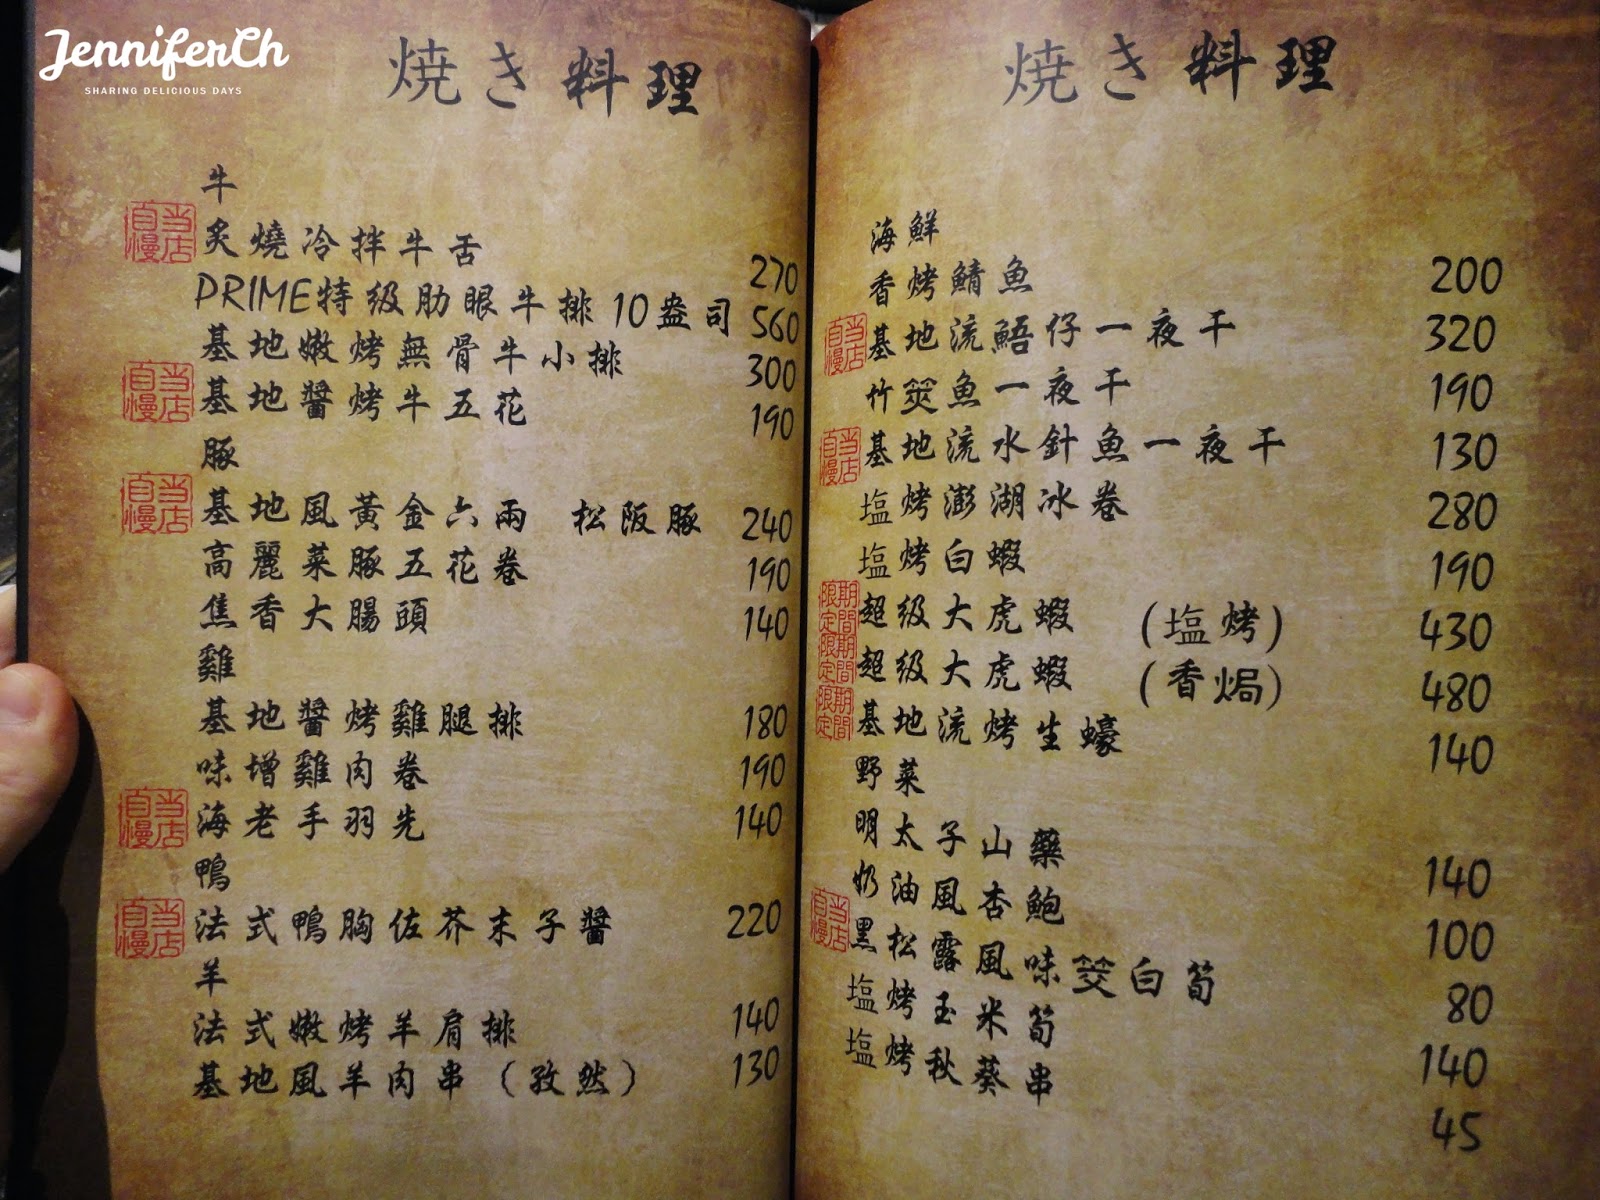 JenniferCh
SHARING DELICIOUS DAYS
焼き料理
牛
当店自慢
炙燒冷拌牛舌 270
PRIME特级肋眼牛排10盎司 560
基地嫩烤無骨牛小排 300
当店自慢
基地醬烤牛五花 190
豚
当店自慢
基地風黃金六兩 松阪豚 240
高麗菜豚五花卷 190
焦香大腸頭 140
雞
基地醬烤雞腿排 180
味增雞肉卷 190
当店自慢
海老手羽先 140
鴨
当店自慢
法式鴨胸佐芥末子醬 220
羊
法式嫩烤羊肩排 140
基地風羊肉串(孜然) 130
焼き料理
海鮮
香烤鯖魚 200
当店自慢
基地流鯃仔一夜干 320
竹筴魚一夜干 190
当店自慢
基地流水針魚一夜干 130
塩烤澎湖冰卷 280
塩烤白蝦 190
期間限定
超级大虎蝦 (塩烤) 430
期間限定
超级大虎蝦 (香焗) 480
期間限定
基地流烤生蠔 140
野菜
明太子山藥 140
奶油風杏鮑 100
当店自慢
黑松露風味筊白筍 80
塩烤玉米筍 140
塩烤秋葵串 45